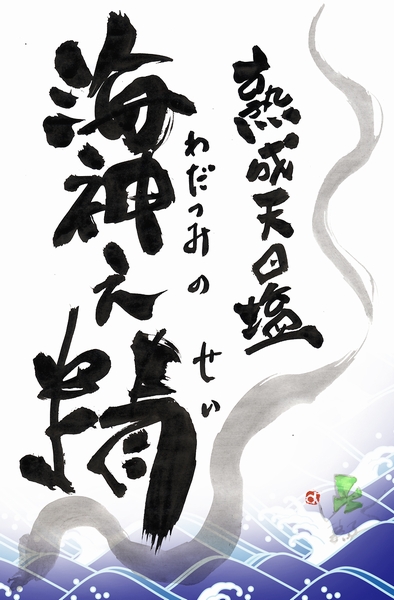 熟成天日塩
海神之精
わだつみの せい